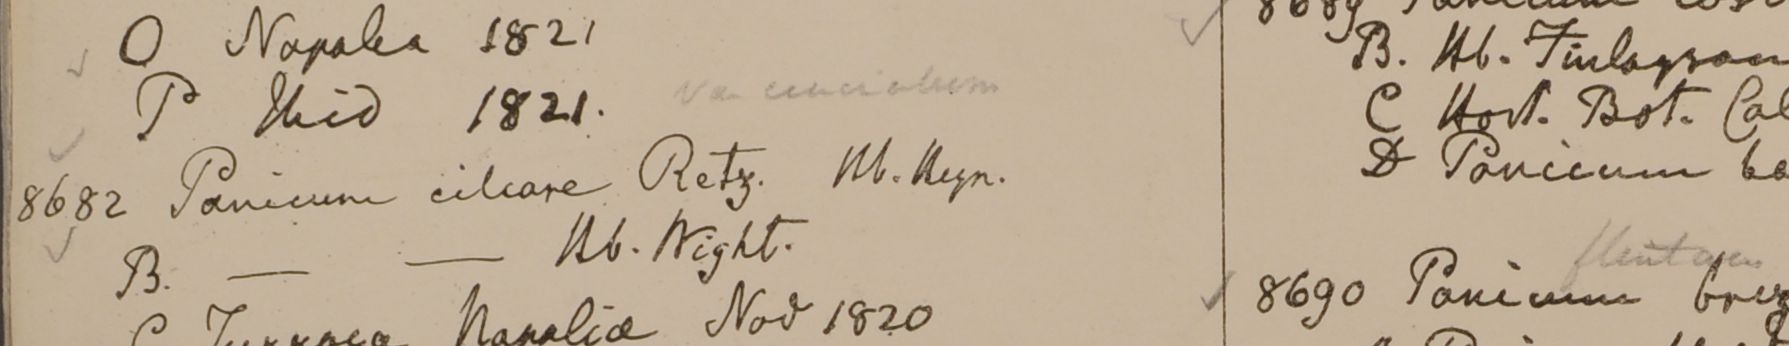 O Napalea 1821
P Ibid 1821.
8682 Panicum ciliare Retz. Hb. Heyn.
B. — — Hb. Wight.
C Napaliæ Nov 1820
8689 Panicum
B. Hb. Finlayson
C Hort. Bot. Cal
D Panicum
8690 Panicum